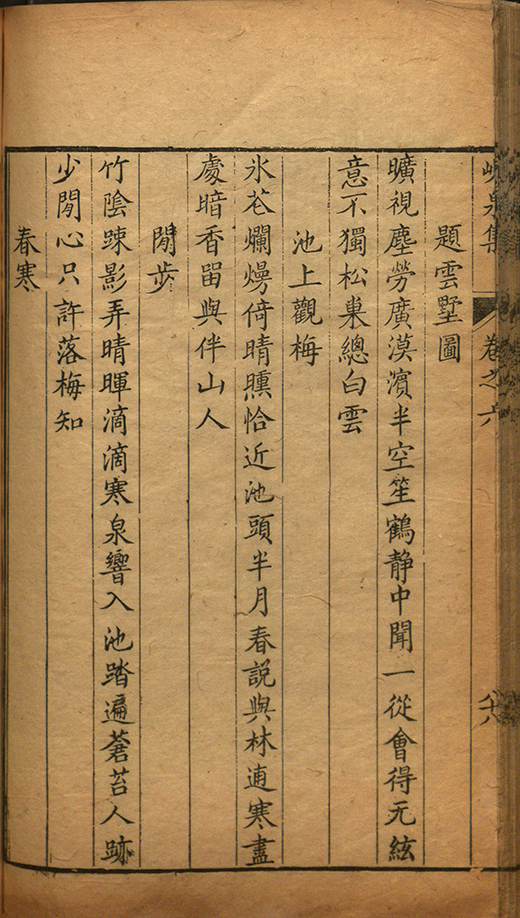 峴泉集 卷之六 六八
題雲墅圖
曠視塵勞廣漠濱半空笙鶴静中聞一從會得无絃
意不獨松巢總白雲
池上觀梅
氷花爛熳倚晴曛恰近池頭半月春説與林逋寒盡
處暗香留與伴山人
閒步
竹陰踈影弄晴暉滴滴寒泉響入池踏遍蒼苔人跡
少閒心只許落梅知
春寒